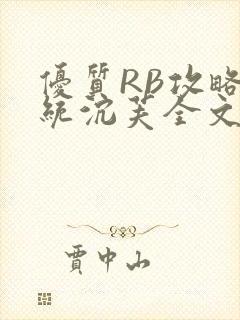 優質RB攻略
統沈芙全文
賈中山